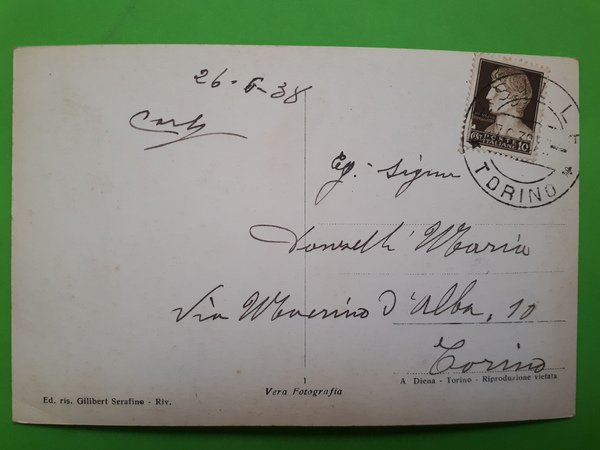 26-6-38
Carlo
Eg. Signa
Donzelli Maria
Via d'Alba, 10
Torino
POSTE
ITALIANE 10
TORINO
1
Vera Fotografia
A Diena - Torino - Riproduzione vietata
Ed. ris. Gilibert Serafino - Riv.